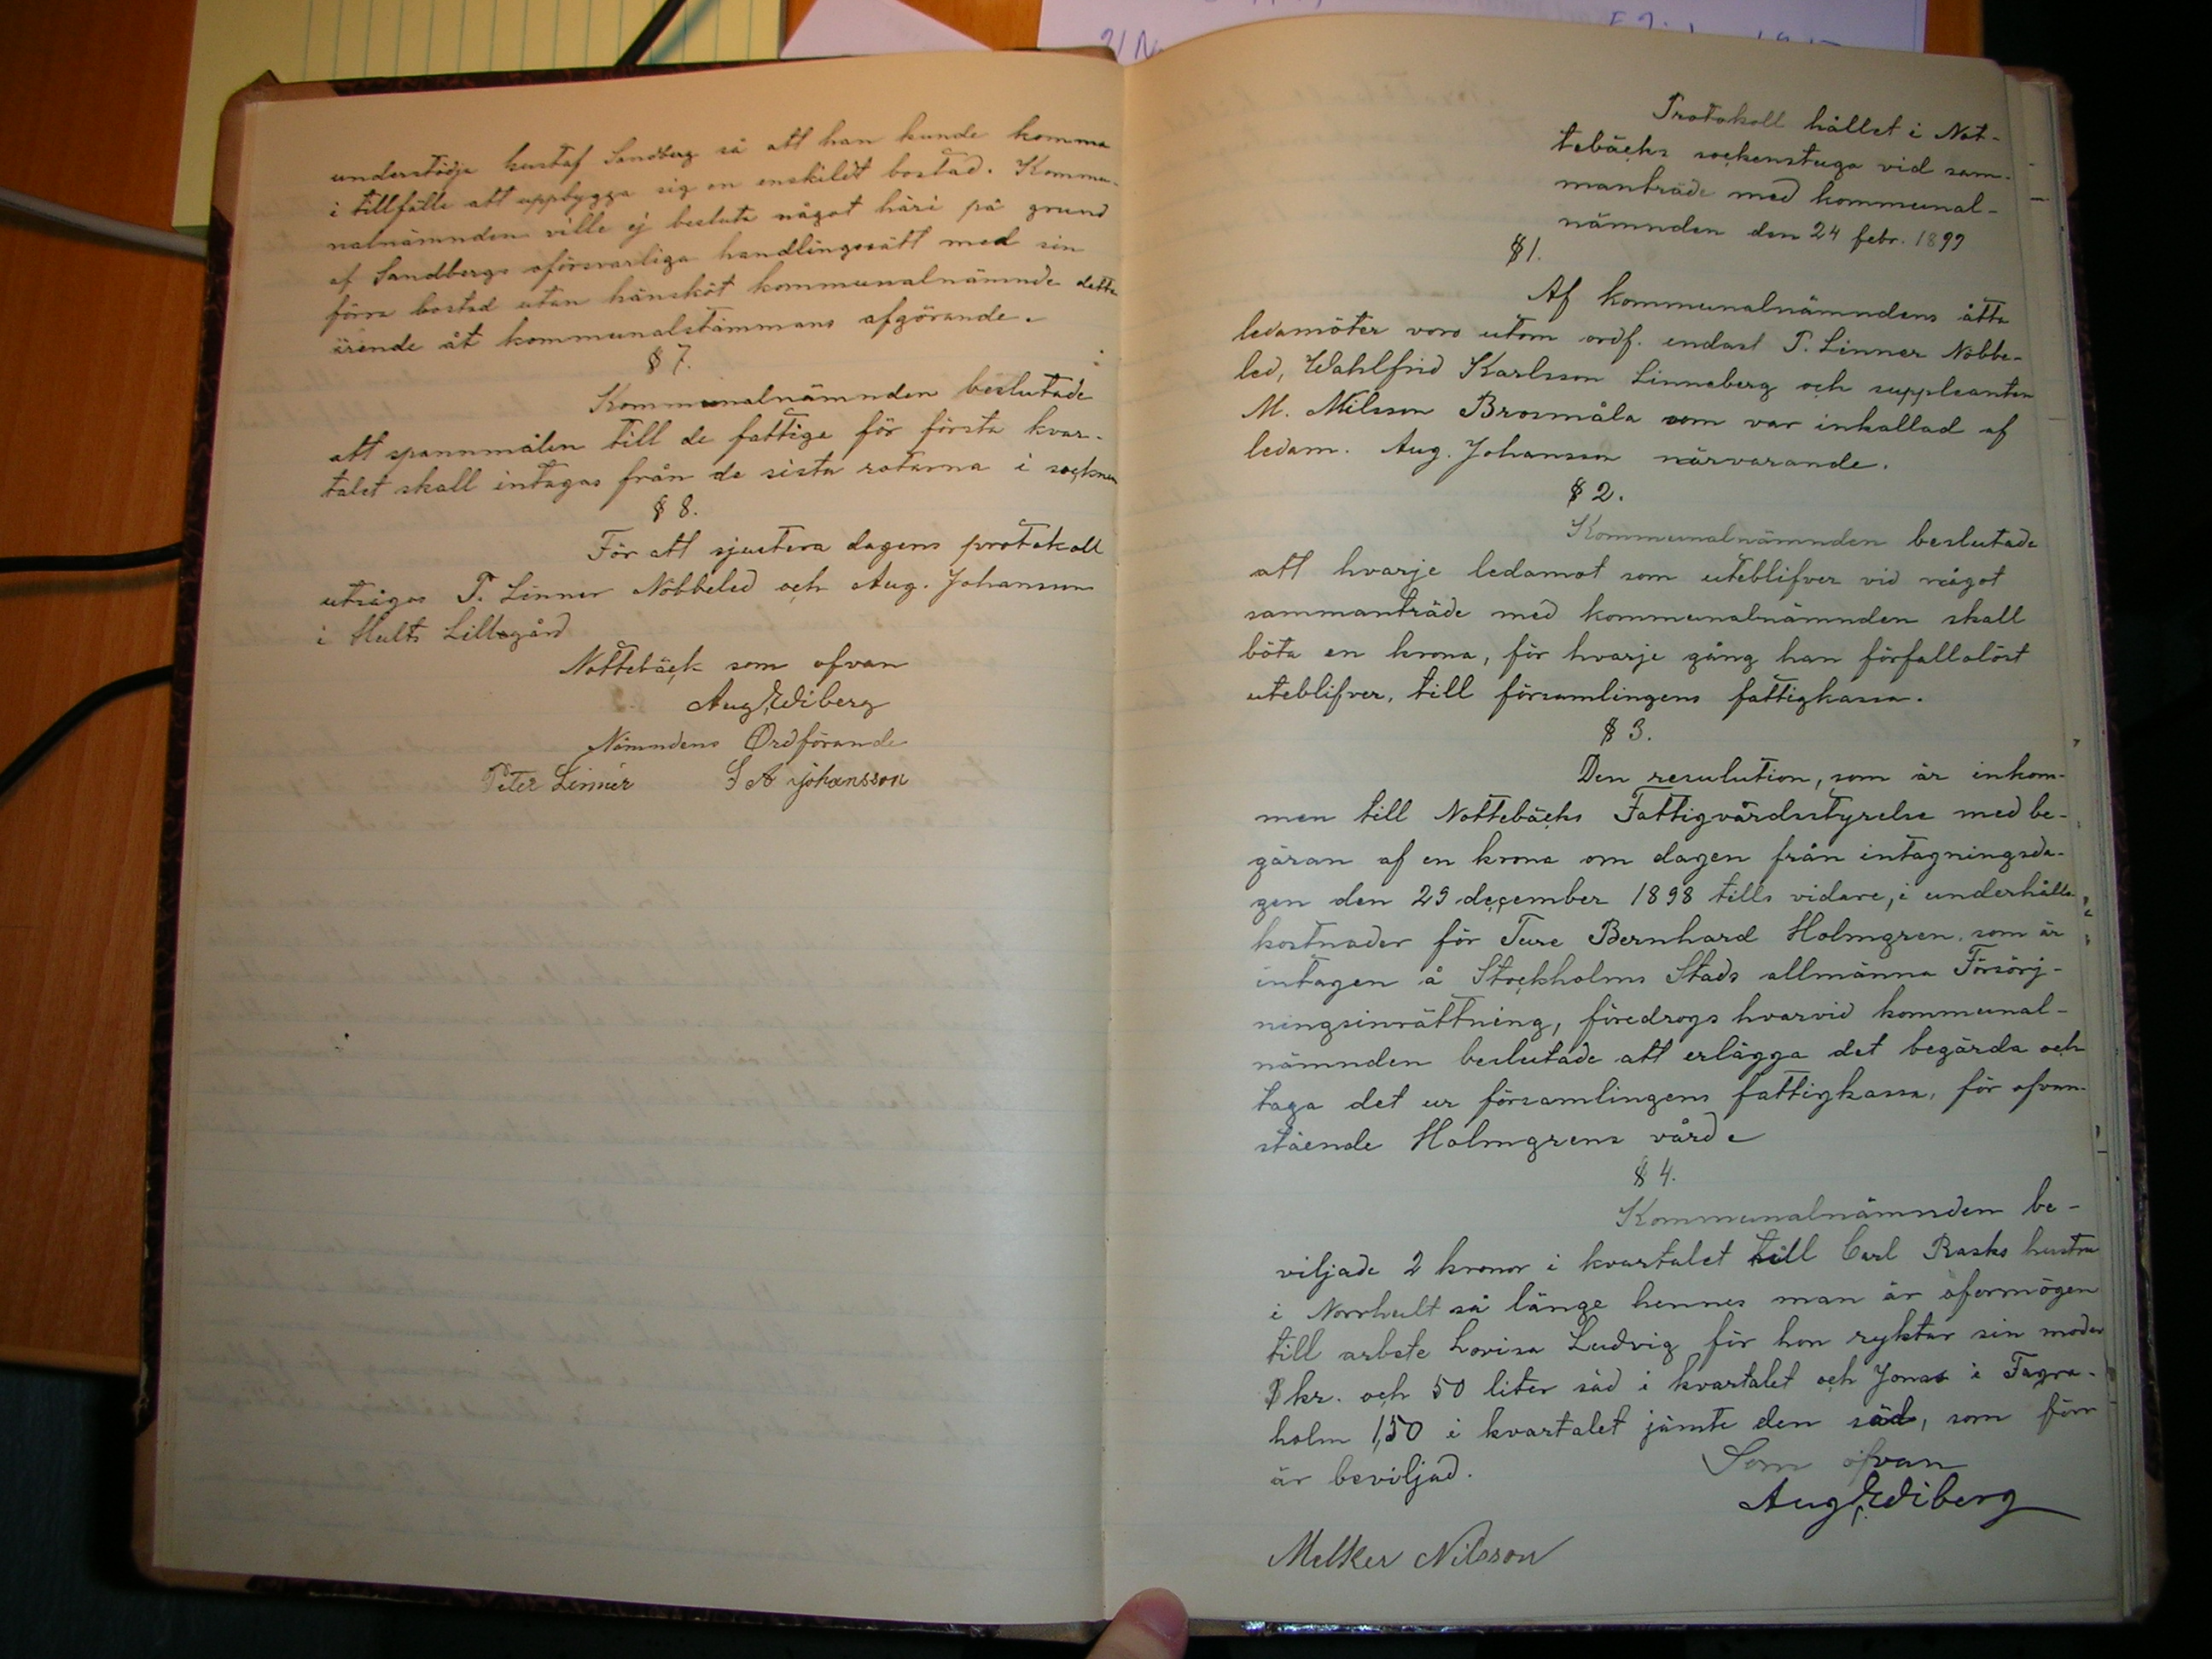 understödja Gustaf Sandberg så att han kunde komma
i tillfälle att uppbygga sig en enskildt bostad. Kommu-
nalnämnden ville ej besluta något häri på grund
af Sandbergs oförsvarliga handlingssätt med sin
förra bostad utan hänsköt kommunalnämnde detta
ärende åt kommunalstämmans afgörande.
§ 7.
Kommunalnämnden beslutade
att spannmålen till de fattiga för första kvar-
talet skall intagas från de sista rotarna i socknen
§ 8.
För att sjustera dagens protokoll
utsågos P. Linner Nöbbeled och Aug. Johansson
i Hults Lillegård
Nottebäck som ofvan
Aug Wiberg
Nämndens Ordförande
Peter Linnér S A Johansson
Protokoll hållet i Not-
tebäcks sockenstuga vid sam-
manträde med kommunal-
nämnden den 24 febr. 1899
§ 1.
Af kommunalnämndens åtta
ledamöter voro utom ordf. endast P. Linner Nöbbe-
led, Wahlfrid Karlsson Linneberg och suppleanten
M. Nilsson Brosmåla som var inkallad af
ledam. Aug. Johansson närvarande.
§ 2.
Kommunalnämnden beslutade
att hvarje ledamot som uteblifver vid något
sammanträde med kommunalnämnden skall
böta en krona, för hvarje gång han förfallolöst
uteblifver, till församlingens fattigkassa.
§ 3.
Den resulution, som är inkom-
men till Nottebäcks Fattigvårdsstyrelse med be-
gäran af en krona om dagen från intagningsda-
gen den 29 december 1898 tills vidare, i underhålls-
kostnader för Ture Bernhard Holmgren, som är
intagen å Stockholms Stads allmänna Försörj-
ningsinrättning, föredrogs hvarvid kommunal-
nämnden beslutade att erlägga det begärda och
taga det ur församlingens fattigkassa, för ofvan-
stående Holmgrens vård
§ 4.
Kommunalnämnden be-
viljade 2 kronor i kvartalet till Carl Rasks hustru
i Norrhult så länge hennes man är oformögen
till arbete Lovisa Ludvig för hon ryktar sin moder
kr. och 50 liter säd i kvartalet och Jonas i Fagra-
holm 1,50 i kvartalet jämte den säd, som förr
är beviljad.
Som ofvan
Aug Wiberg
Melker Nilsson